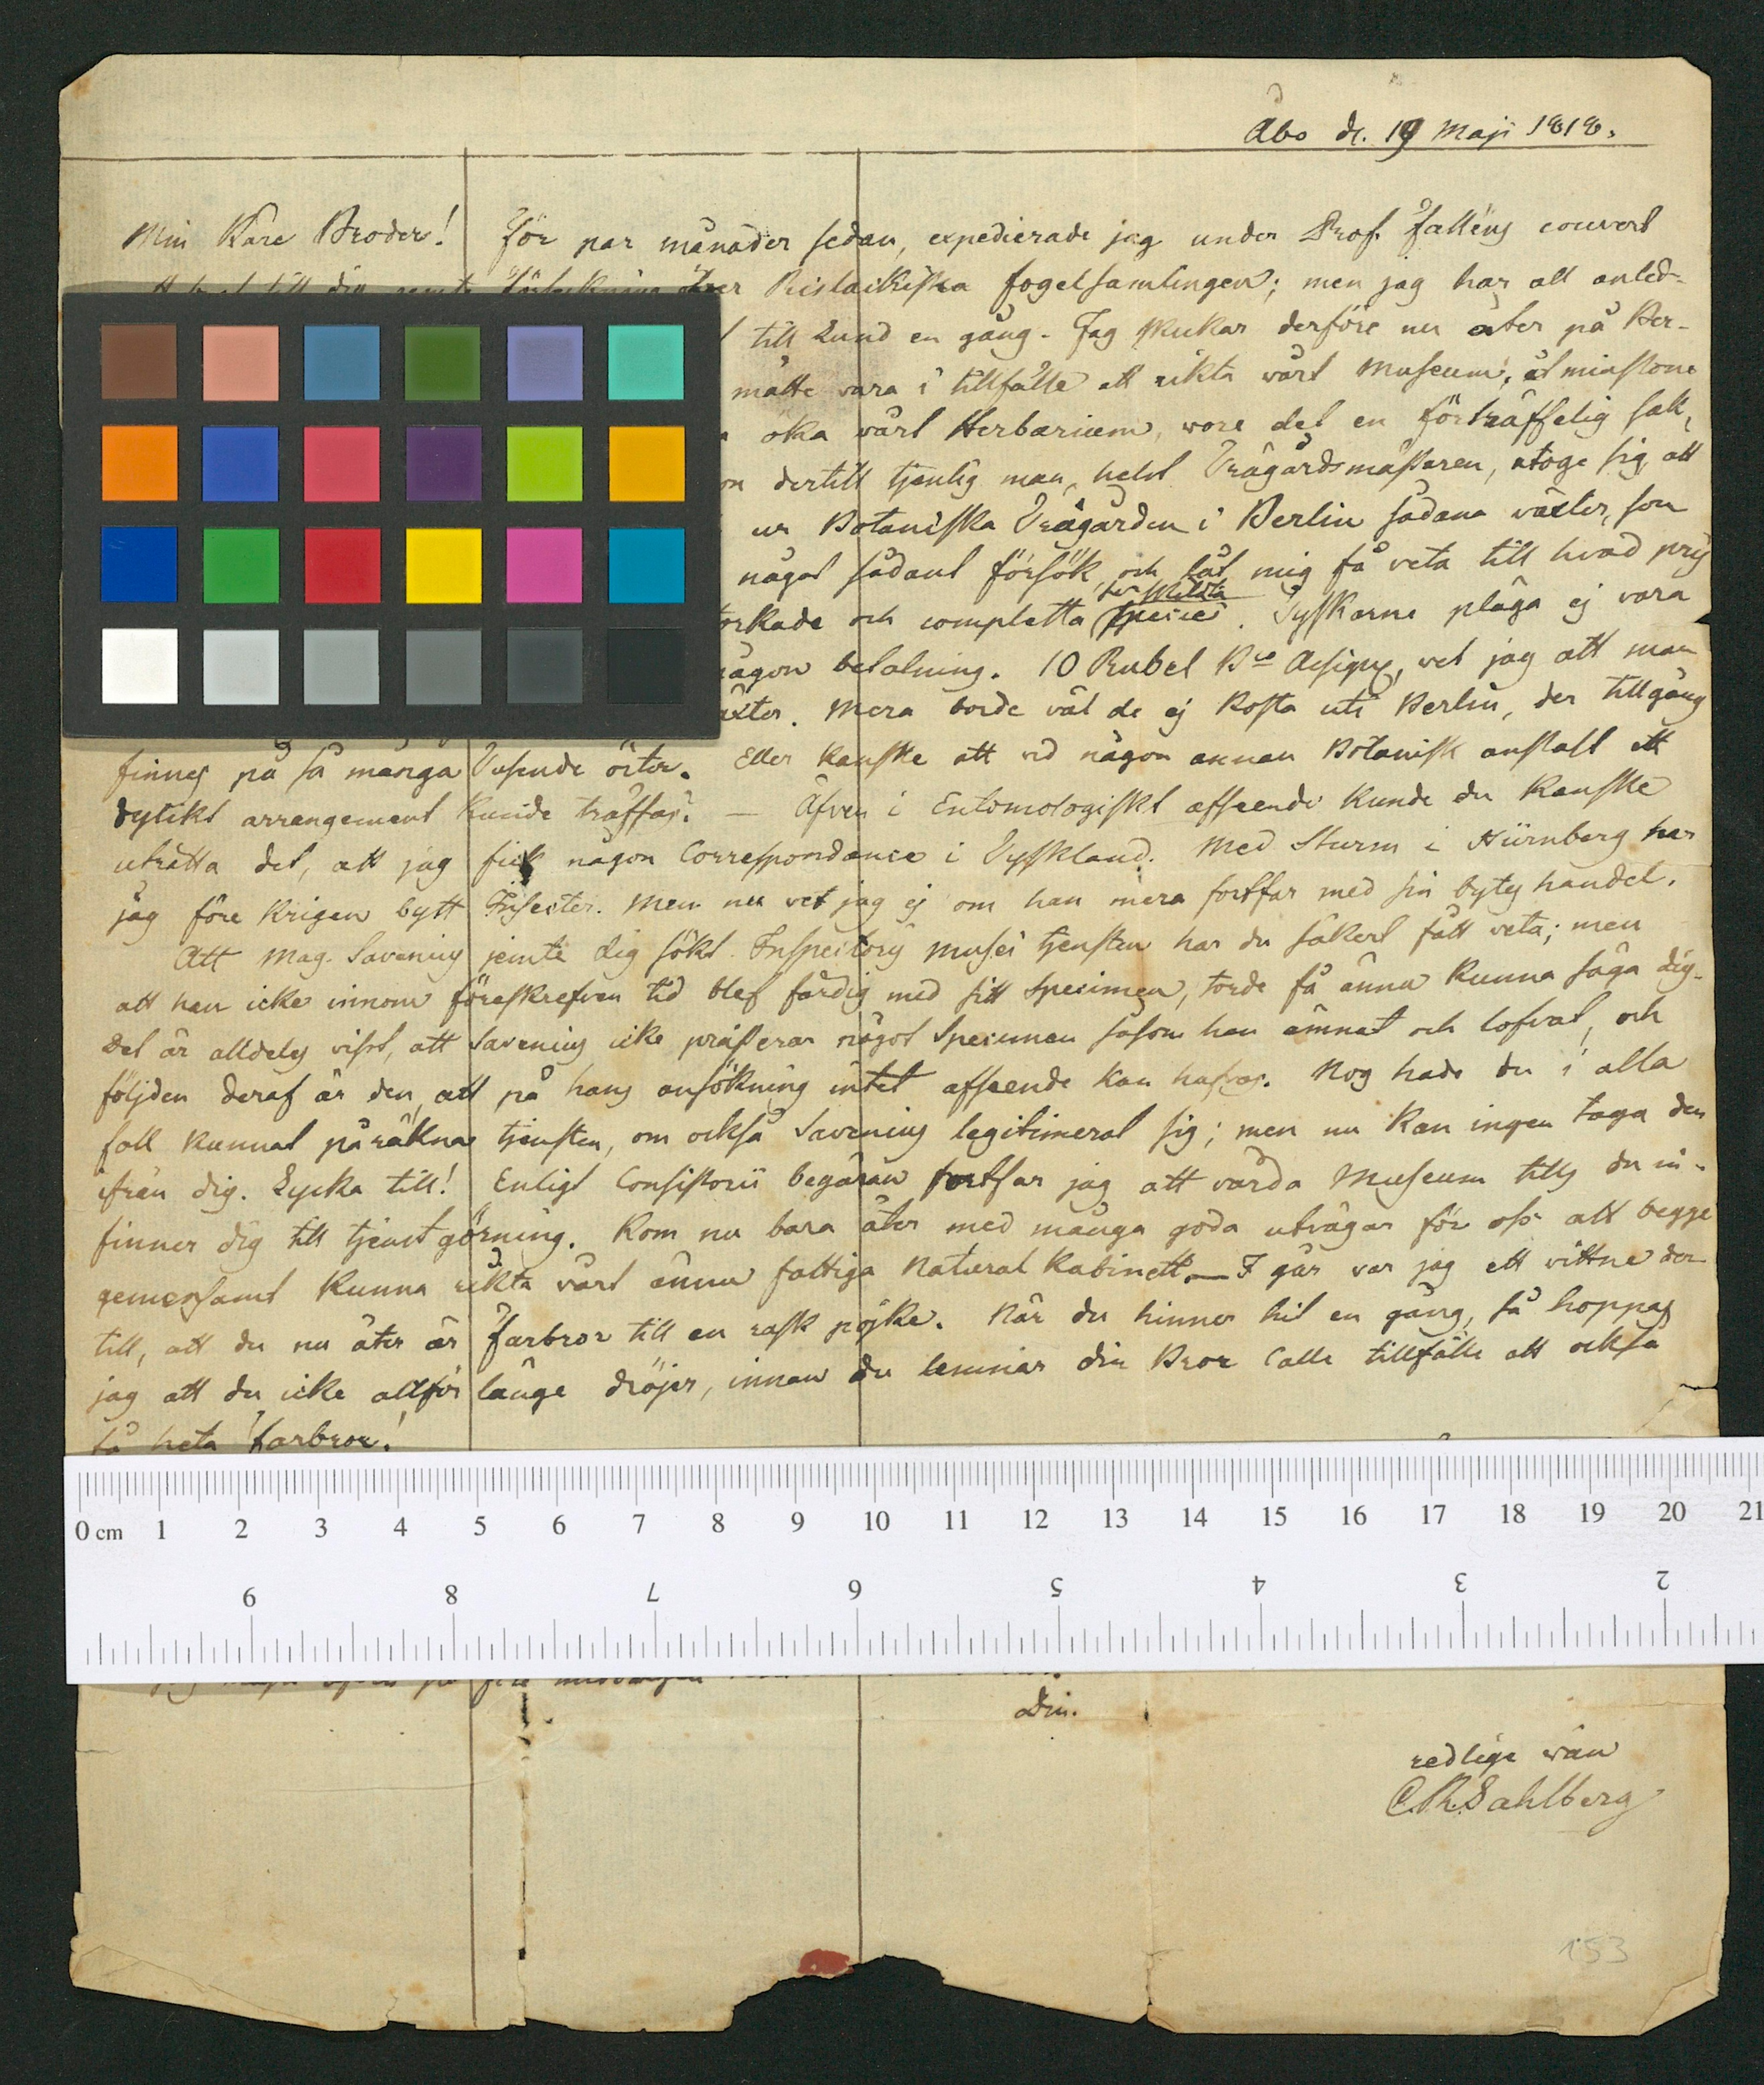 Åbo d. 19 Maji 1818.
Min Käre Broder! För par månader sedan, expedierade jag under Prof. Falléns couvert
till dig jemte förteckning öfver Rislackiska fogelsamlingen; men jag har all anled-
till Lund en gång. Jag skickar derföre nu åter på Ber-
måtte vara i tillfälle att rikta vårt Museum, åtminstone
öka vårt Herbarium, vore det en förträffelig sak,
dertill tjenlig man, helst Trägårdsmästaren, åtoge sig att
ur Botaniska Trägården i Berlin sådana växter, som
något sådant försök, och låt mig få veta till hvad pris
torkade och completta species. Tyskarne pläga ej vara
särskilda
någon betalning. 10 Rubel Bco Assign, vet jag att man
växter. Mera borde väl de ej kosta uti Berlin, der tillgång
finnes på så många Tusende örter. Eller kanske att vid någon annan Botanisk anstalt ett
dylikt arrangement kunde träffas? — Äfven i Entomologiskt afseende kunde du kanske
uträtta det, att jag fick någon Correspondance i Tyskland. Med Sturm i Nürnberg har
jag före krigen bytt Insecter. Men nu vet jag ej om han mera fortfar med sin byteshandel.
Att Mag. Savenius jemte dig sökt Inspectoris Musei tjensten har du säkert fått veta; men
att han icke innom föreskrefven tid blef färdig med sitt Specimen, torde få ännu kunna säga dig.
Det är alldeles visst, att Savenius icke præsterar något Specimen såsom han ämnat och lofvat, och
följden deraf är den, att på hans ansökning intet afseende kan hafvas. Nog hade du i alla
fall kunnat påräkna tjensten, om också Savenius legitimerat sig; men nu kan ingen taga den
ifrån dig. Lycka till! Enligt Consistorii begäran fortfar jag att vårda Museum tills du in-
finner dig till tjenstgörning. Kom nu bara åter med många goda utvägar för oss att begge
gemensamt kunna rikta vårt ännu fattiga Natural Kabinett. — I går var jag ett vittne der-
till, att du nu åter är Farbror till en rask pojke. När du hinner hit en gång, så hoppas
jag att du icke allför länge dröjer, innan du lemnar din Bror Calle tillfälle att också
få heta Farbror!
Din.
redlige wän
C.R. Sahlberg
153
0 cm 1 2 3 4 5 6 7 8 9 10 11 12 13 14 15 16 17 18 19 20 21
9 8 7 6 5 4 3 2